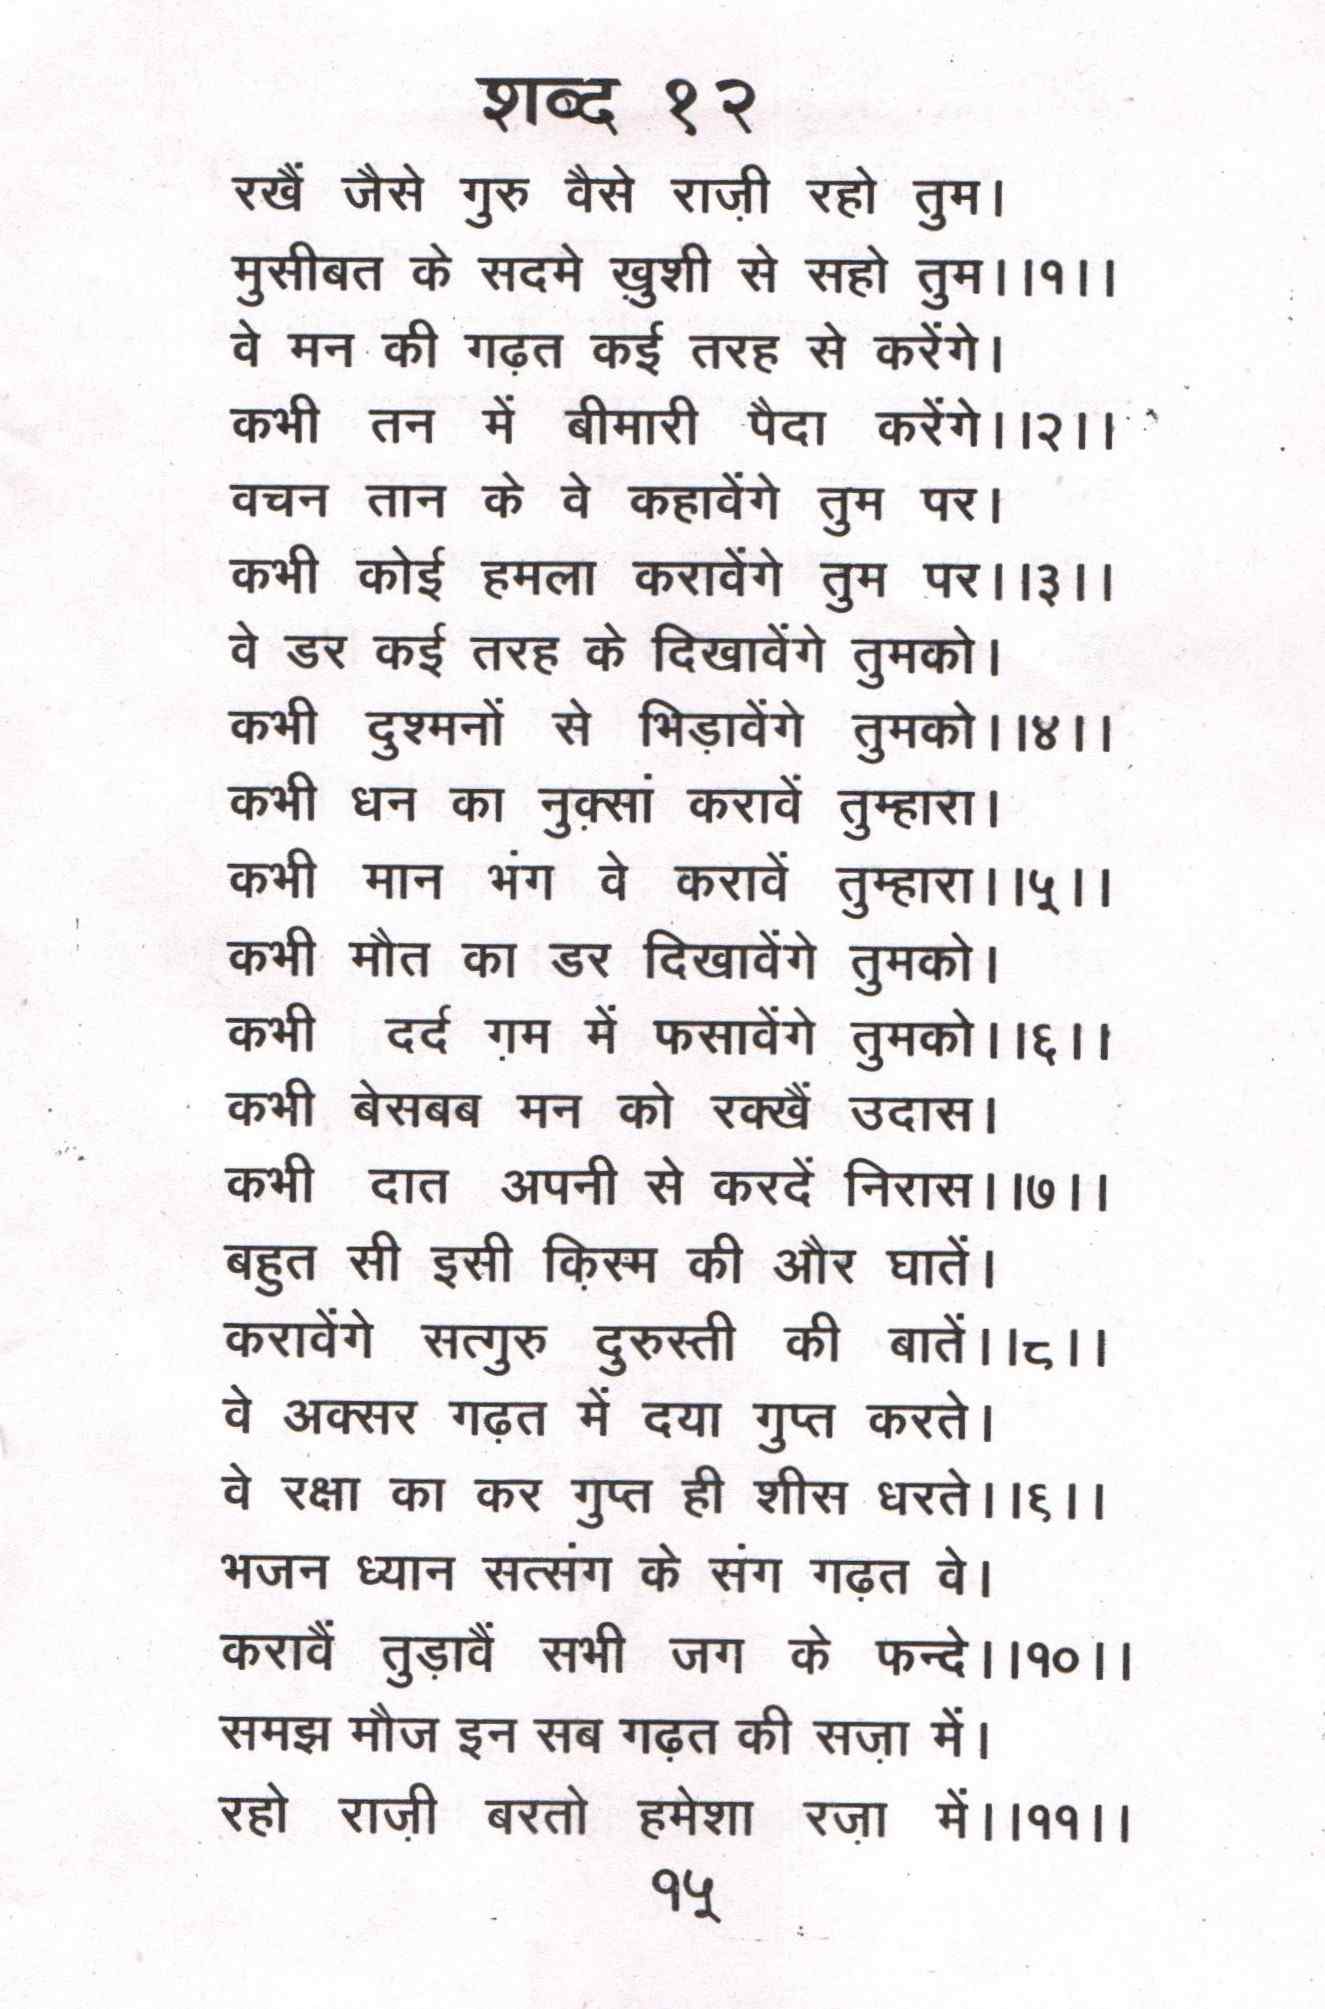 शब्द १२
रखैं जैसे गुरु वैसे राज़ी रहो तुम।
मुसीबत के सदमे ख़ुशी से सहो तुम।।१।।
वे मन की गढ़त कई तरह से करेंगे।
कभी तन में बीमारी पैदा करेंगे।।२।।
वचन तान के वे कहावेंगे तुम पर।
कभी कोई हमला करावेंगे तुम पर।।३।।
वे डर कई तरह के दिखावेंगे तुमको।
कभी दुश्मनों से भिड़ावेंगे तुमको।।४।।
कभी धन का नुक़्सां करावें तुम्हारा।
कभी मान भंग वे करावें तुम्हारा।।५।।
कभी मौत का डर दिखावेंगे तुमको।
कभी दर्द ग़म में फसावेंगे तुमको।।६।।
कभी बेसबब मन को रक्खैं उदास।
कभी दात अपनी से करदें निरास।।७।।
बहुत सी इसी क़िस्म की और घातें।
करावेंगे सत्गुरु दुरुस्ती की बातें।।८।।
वे अक्सर गढ़त में दया गुप्त करते।
वे रक्षा का कर गुप्त ही शीस धरते।।६।।
भजन ध्यान सत्संग के संग गढ़त वे।
करावैं तुड़ावैं सभी जग के फन्दे।।१०।।
समझ मौज इन सब गढ़त की सज़ा में।
रहो राज़ी बरतो हमेशा रज़ा में।।११।।
१५